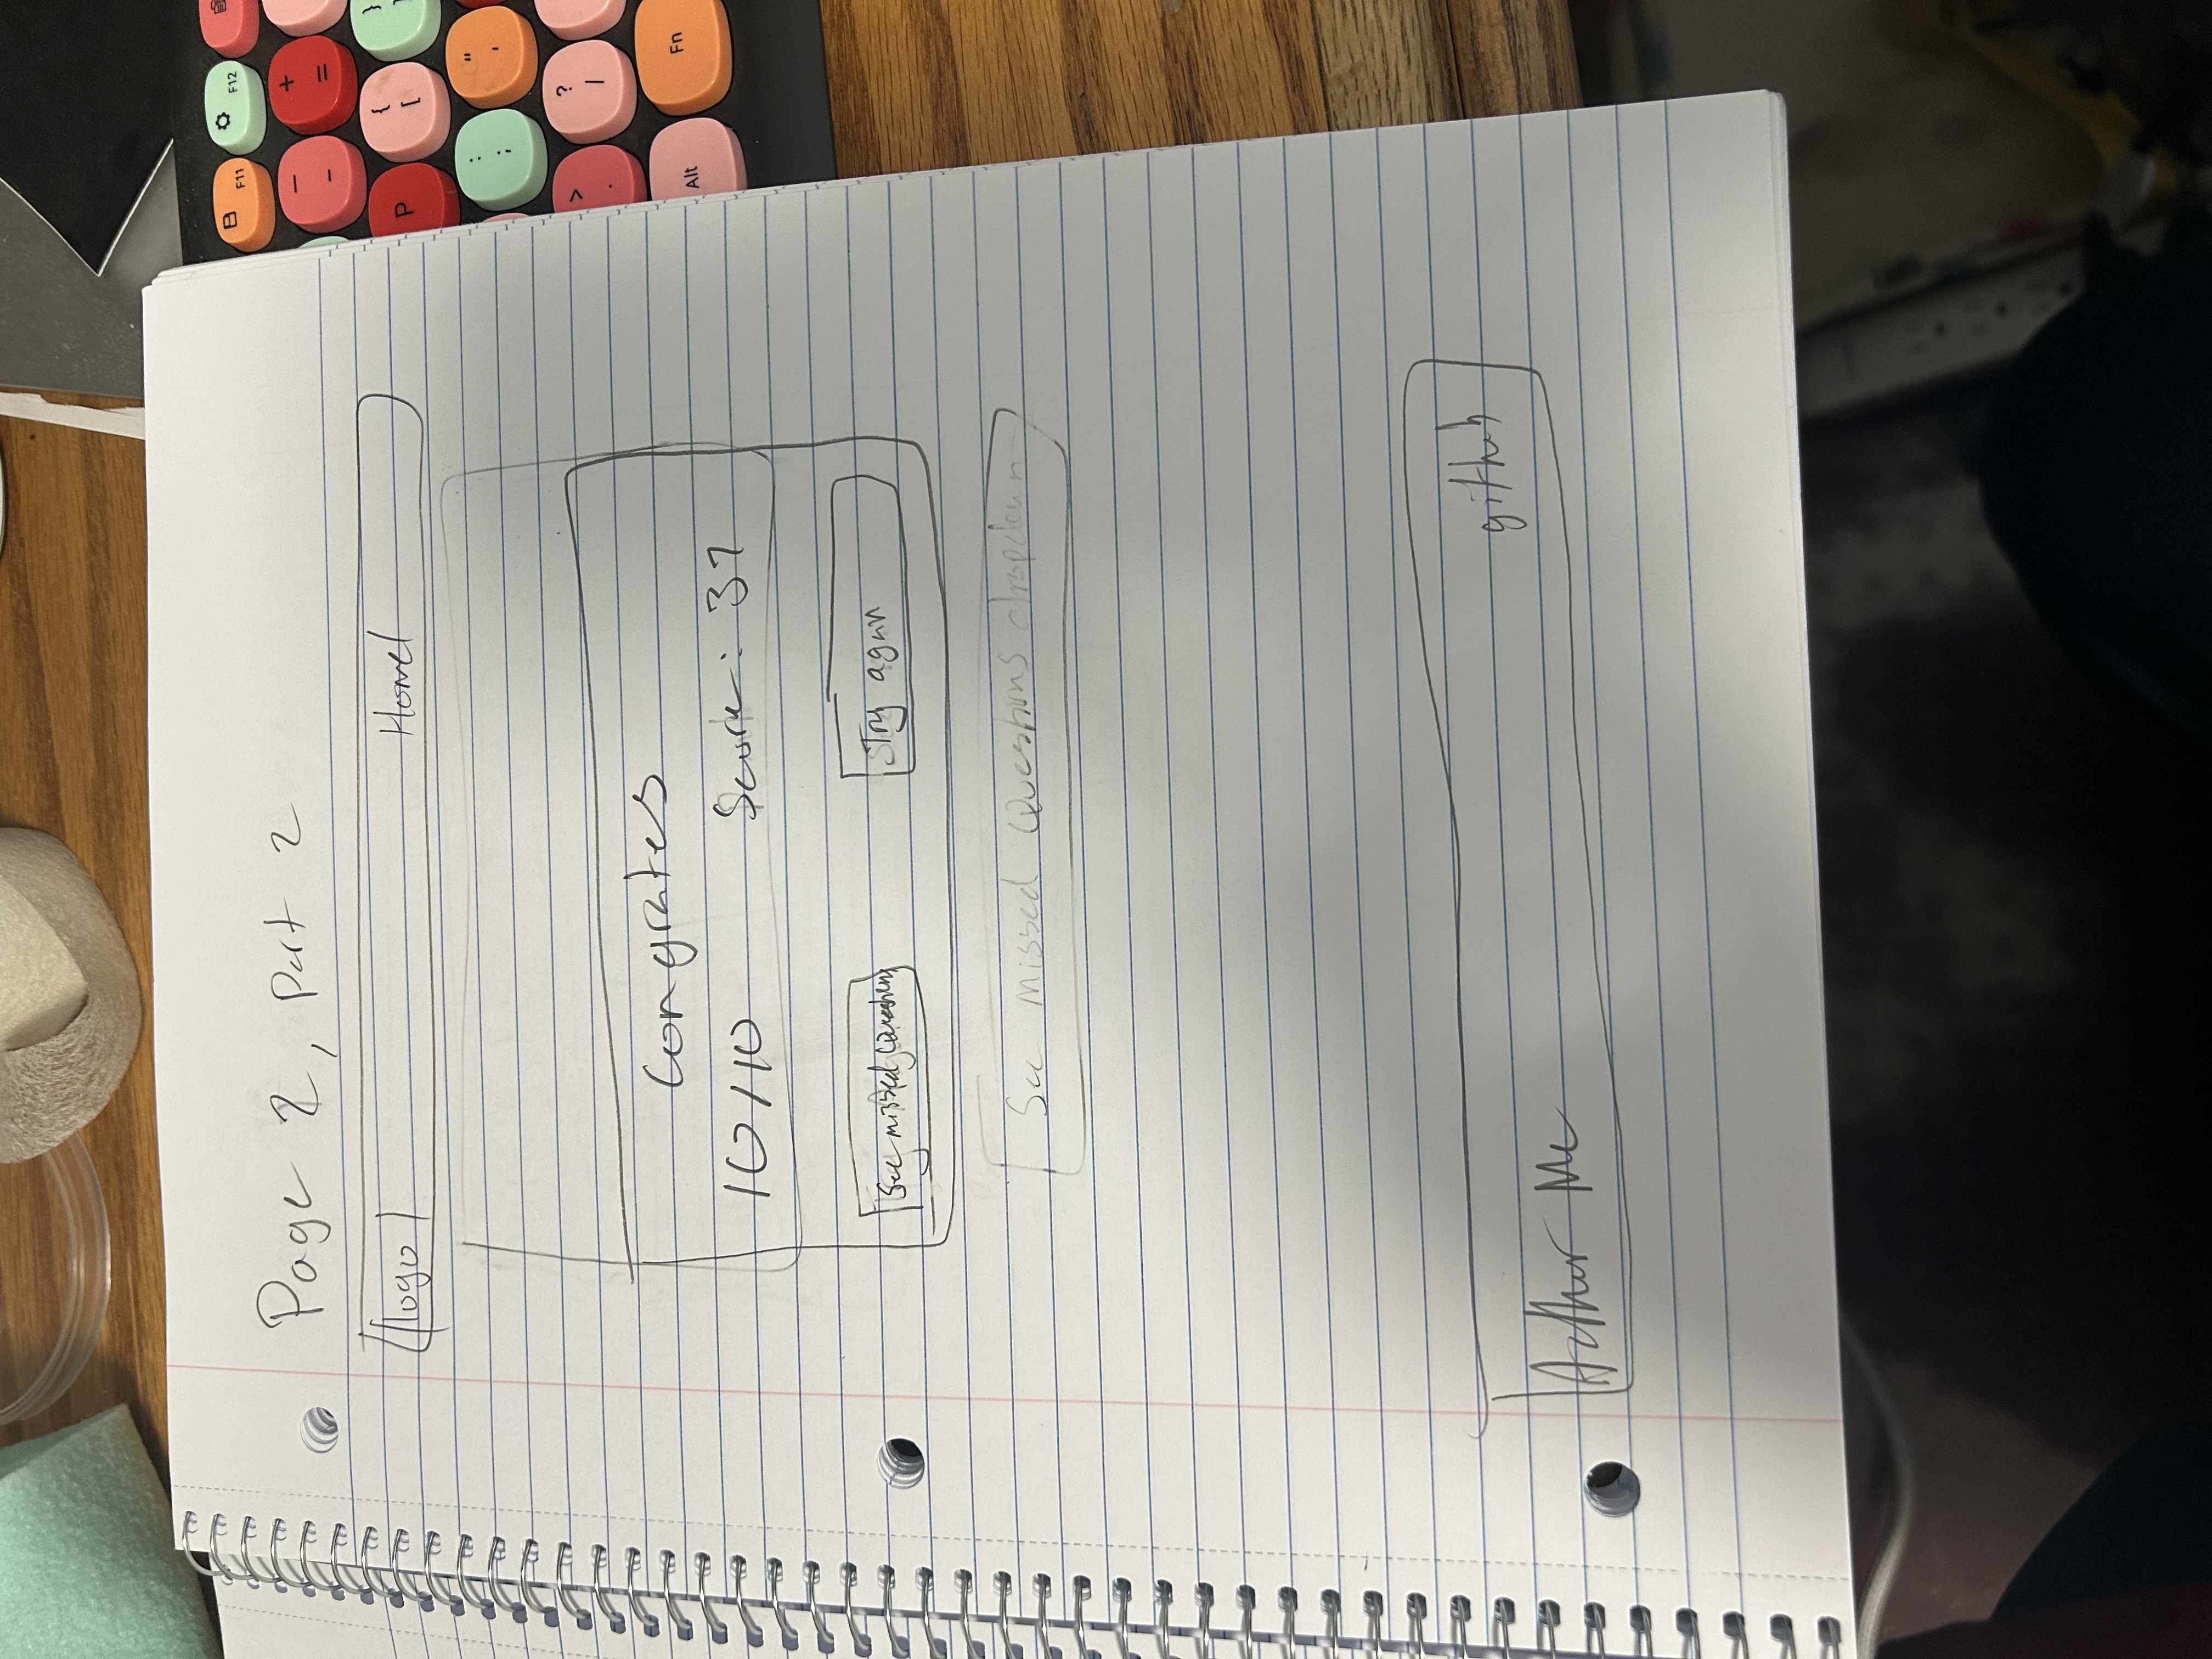 Page 2, Part 2
logo Home
Congrates
10/10 Score: 37
See missed Questions Try again
See missed Questions dropdown
github
Auther Me
F11 F12
- -
+ =
P { [ }
: ; " '
> . ? /
Alt Fn